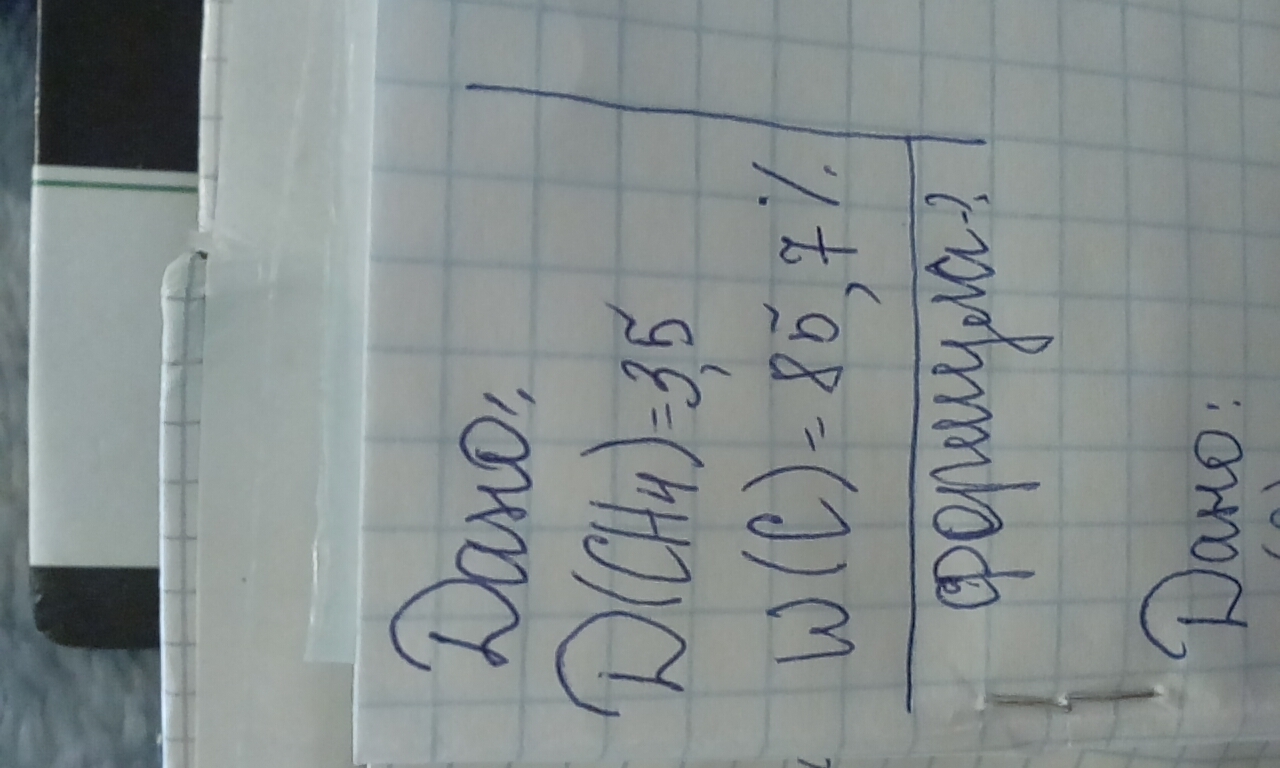 Дано:
D(CH4)=3,5
W(C)=85,7%
формула-?
Дано: